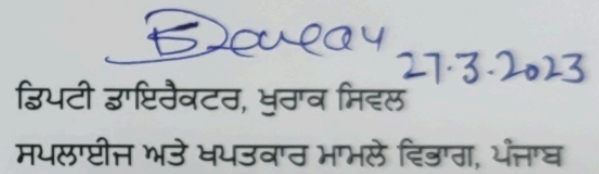 27.3.2023
ਡਿਪਟੀ ਡਾਇਰੈਕਟਰ, ਖੁਰਾਕ ਸਿਵਲ
ਸਪਲਾਈਜ ਅਤੇ ਖਪਤਕਾਰ ਮਾਮਲੇ ਵਿਭਾਗ, ਪੰਜਾਬ